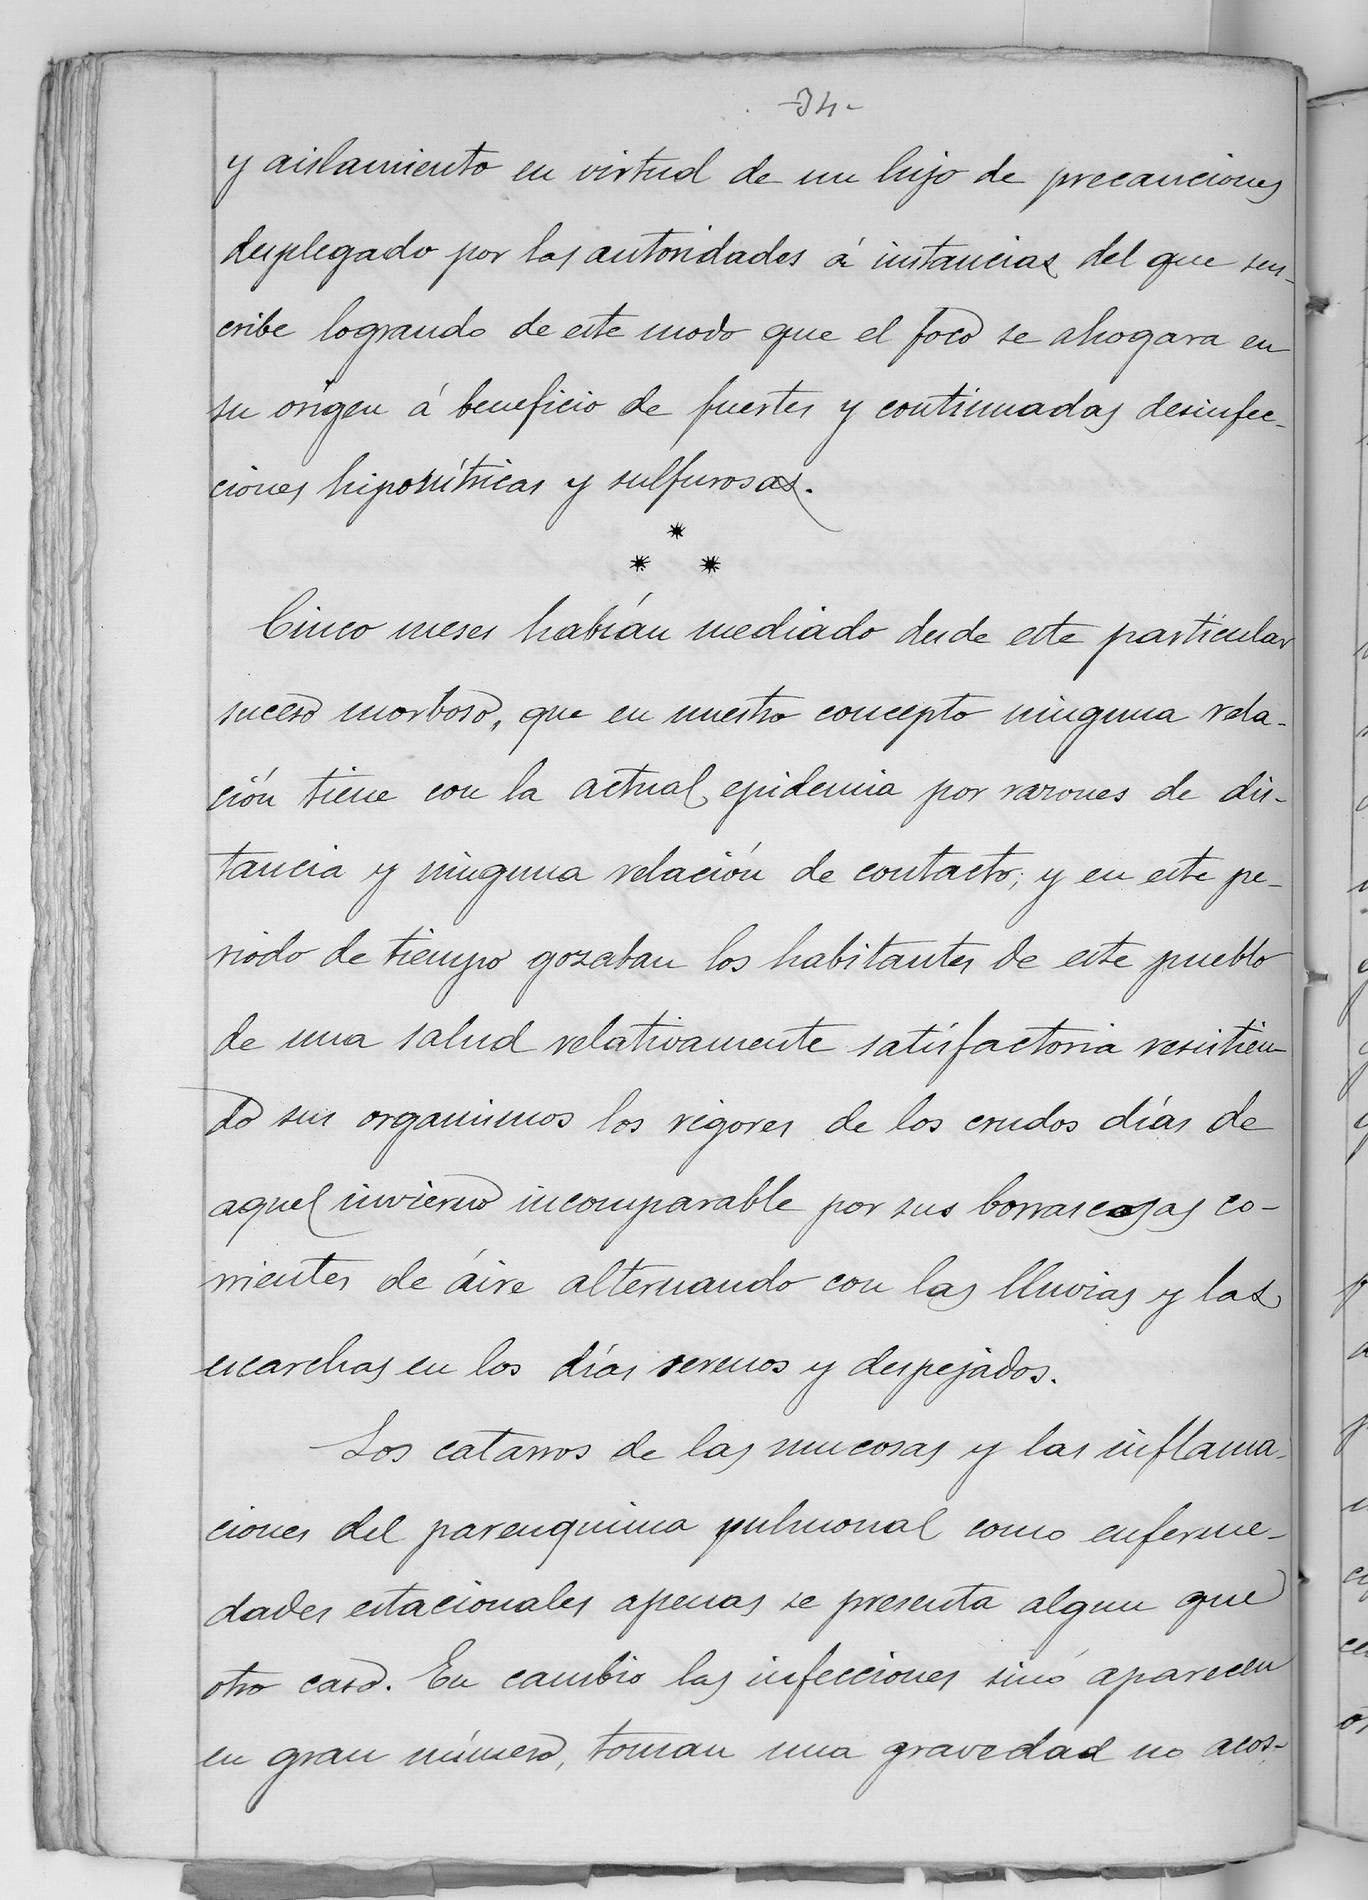 -34-
y aislamiento en virtud de un lujo de precauciones
desplegado por las autoridades á instancias del que sus-
cribe logrando de este modo que el foco se ahogara en
su orígen á beneficio de fuertes y continuadas desinfec-
ciones hiponítricas y sulfurosas.
*
* *
Cinco meses habían mediado desde este particular
suceso morboso, que en nuestro concepto ninguna rela-
ción tiene con la actual epidemia por razones de dis-
tancia y ninguna relación de contacto; y en este pe-
riodo de tiempo gozaban los habitantes de este pueblo
de una salud relativamente satisfactoria resistien-
do sus organismos los rigores de los crudos días de
aquel invierno incomparable por sus borrascosas co-
rrientes de áire alternando con las lluvias y las
escarchas en los días serenos y despejados.
Los catarros de las mucosas y las inflama-
ciones del parenquima pulmonal como enferme-
dades estacionales apenas se presenta algun que
otro caso. En cambio las infecciones sinó aparecen
en gran número, toman una gravedad no acos-